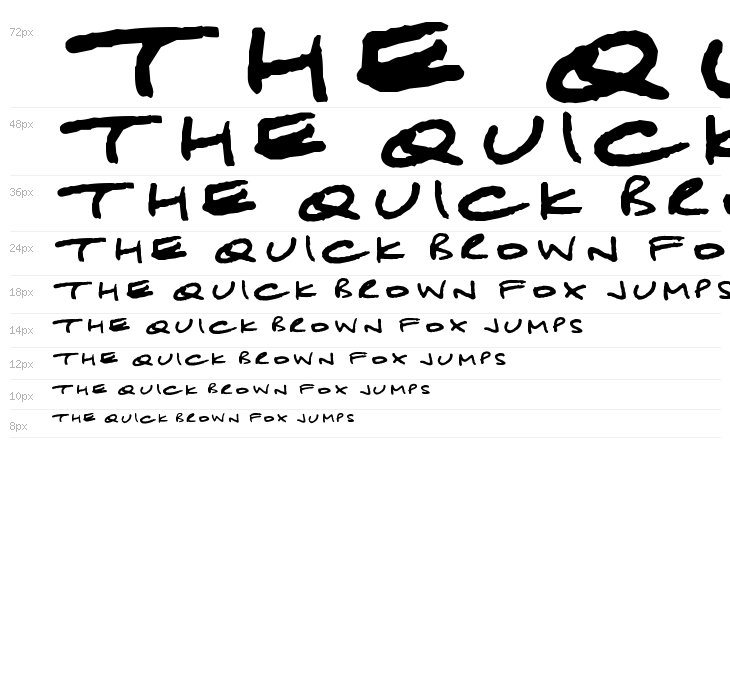 72px THE QU
48px THE QUICK
36px THE QUICK BRO
24px THE QUICK BROWN FO
18px THE QUICK BROWN FOX JUMPS
14px THE QUICK BROWN FOX JUMPS
12px THE QUICK BROWN FOX JUMPS
10px THE QUICK BROWN FOX JUMPS
8px THE QUICK BROWN FOX JUMPS